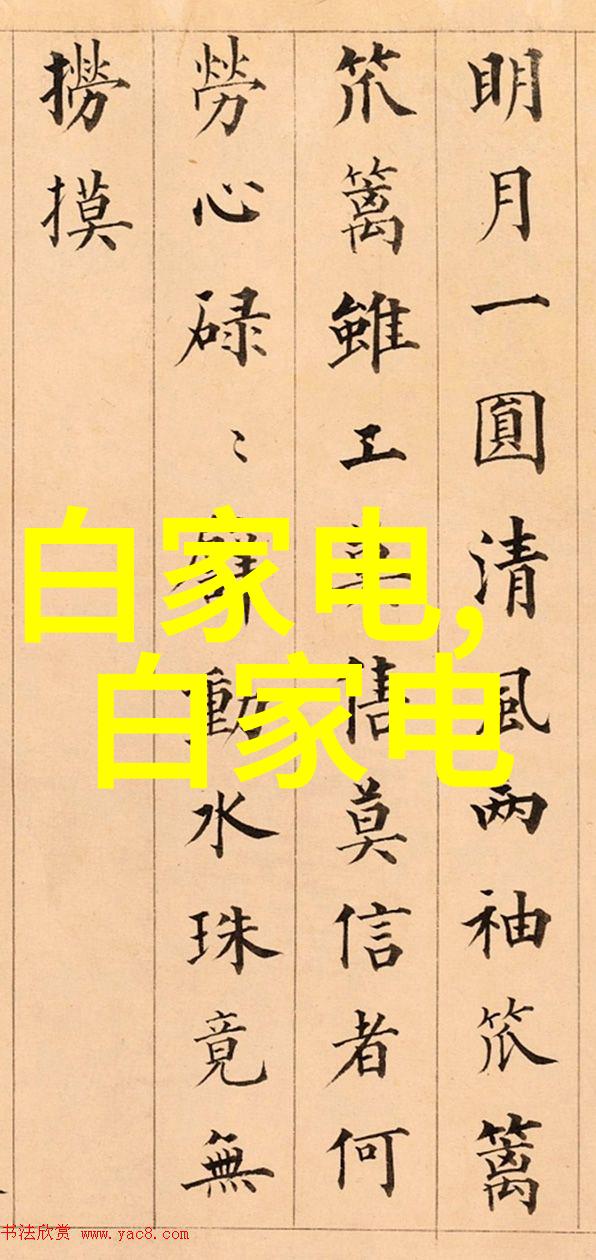 明月一圓清風两袖笊篱
笊篱雖工莫信者何
勞心碌〻動水珠竟無
撈摸
白家电,
白家电
书法欣赏 www.yac8.com